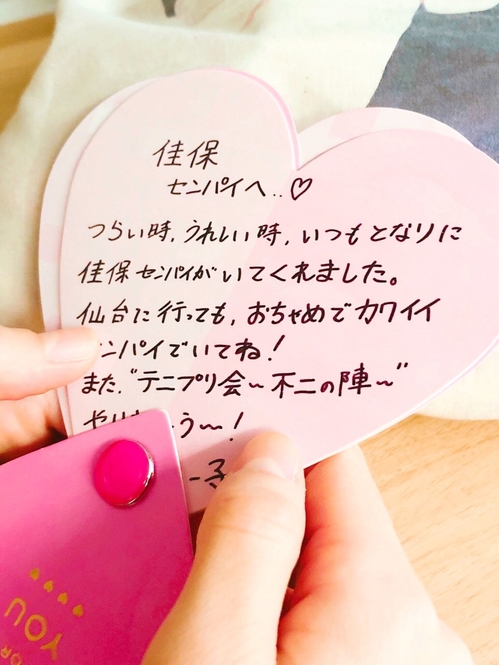 佳保
センパイへ..♡
つらい時,うれしい時,いつもとなりに
佳保センパイがいてくれました。
仙台に行っても,おちゃめでカワイイ
ンパイでいてね!
また,"テニプリ会〜不二の陣〜"
う〜!
子
YOU
OR